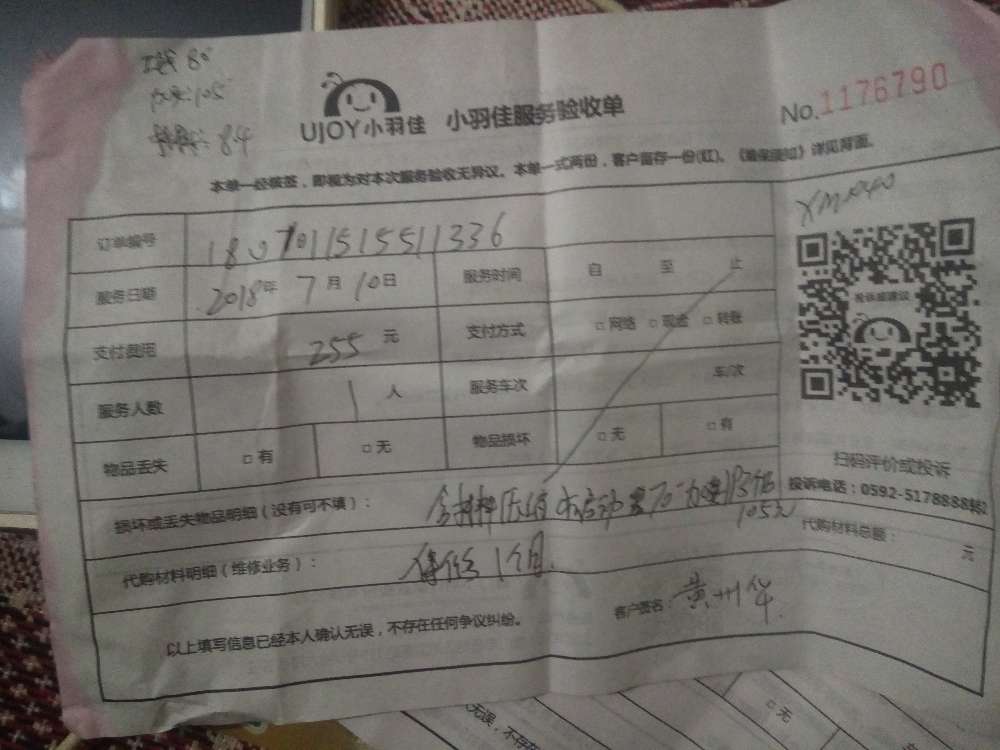 80
105
84
UJOY小羽佳 小羽佳服务验收单
No.1176790
本单一经核签，即视为对本次服务验收无异议。本单一式两份，客户留存一份(红)。《维保须知》详见背面。
订单编号
服务日期 2018年 7月 10日 服务时间 自 至 止
支付费用 255 元 支付方式 □网络 □现金 □转账
服务人数 1 人 服务车次 车/次
物品丢失 □有 □无 物品损坏 □无 □有
投诉或建议
扫码评价或投诉
损坏或丢失物品明细（没有可不填）：
105元
代购材料明细（维修业务）： 保修1个月
代购材料总额： 元
以上填写信息已经本人确认无误，不存在任何争议纠纷。
客户签名：黄州华
□无